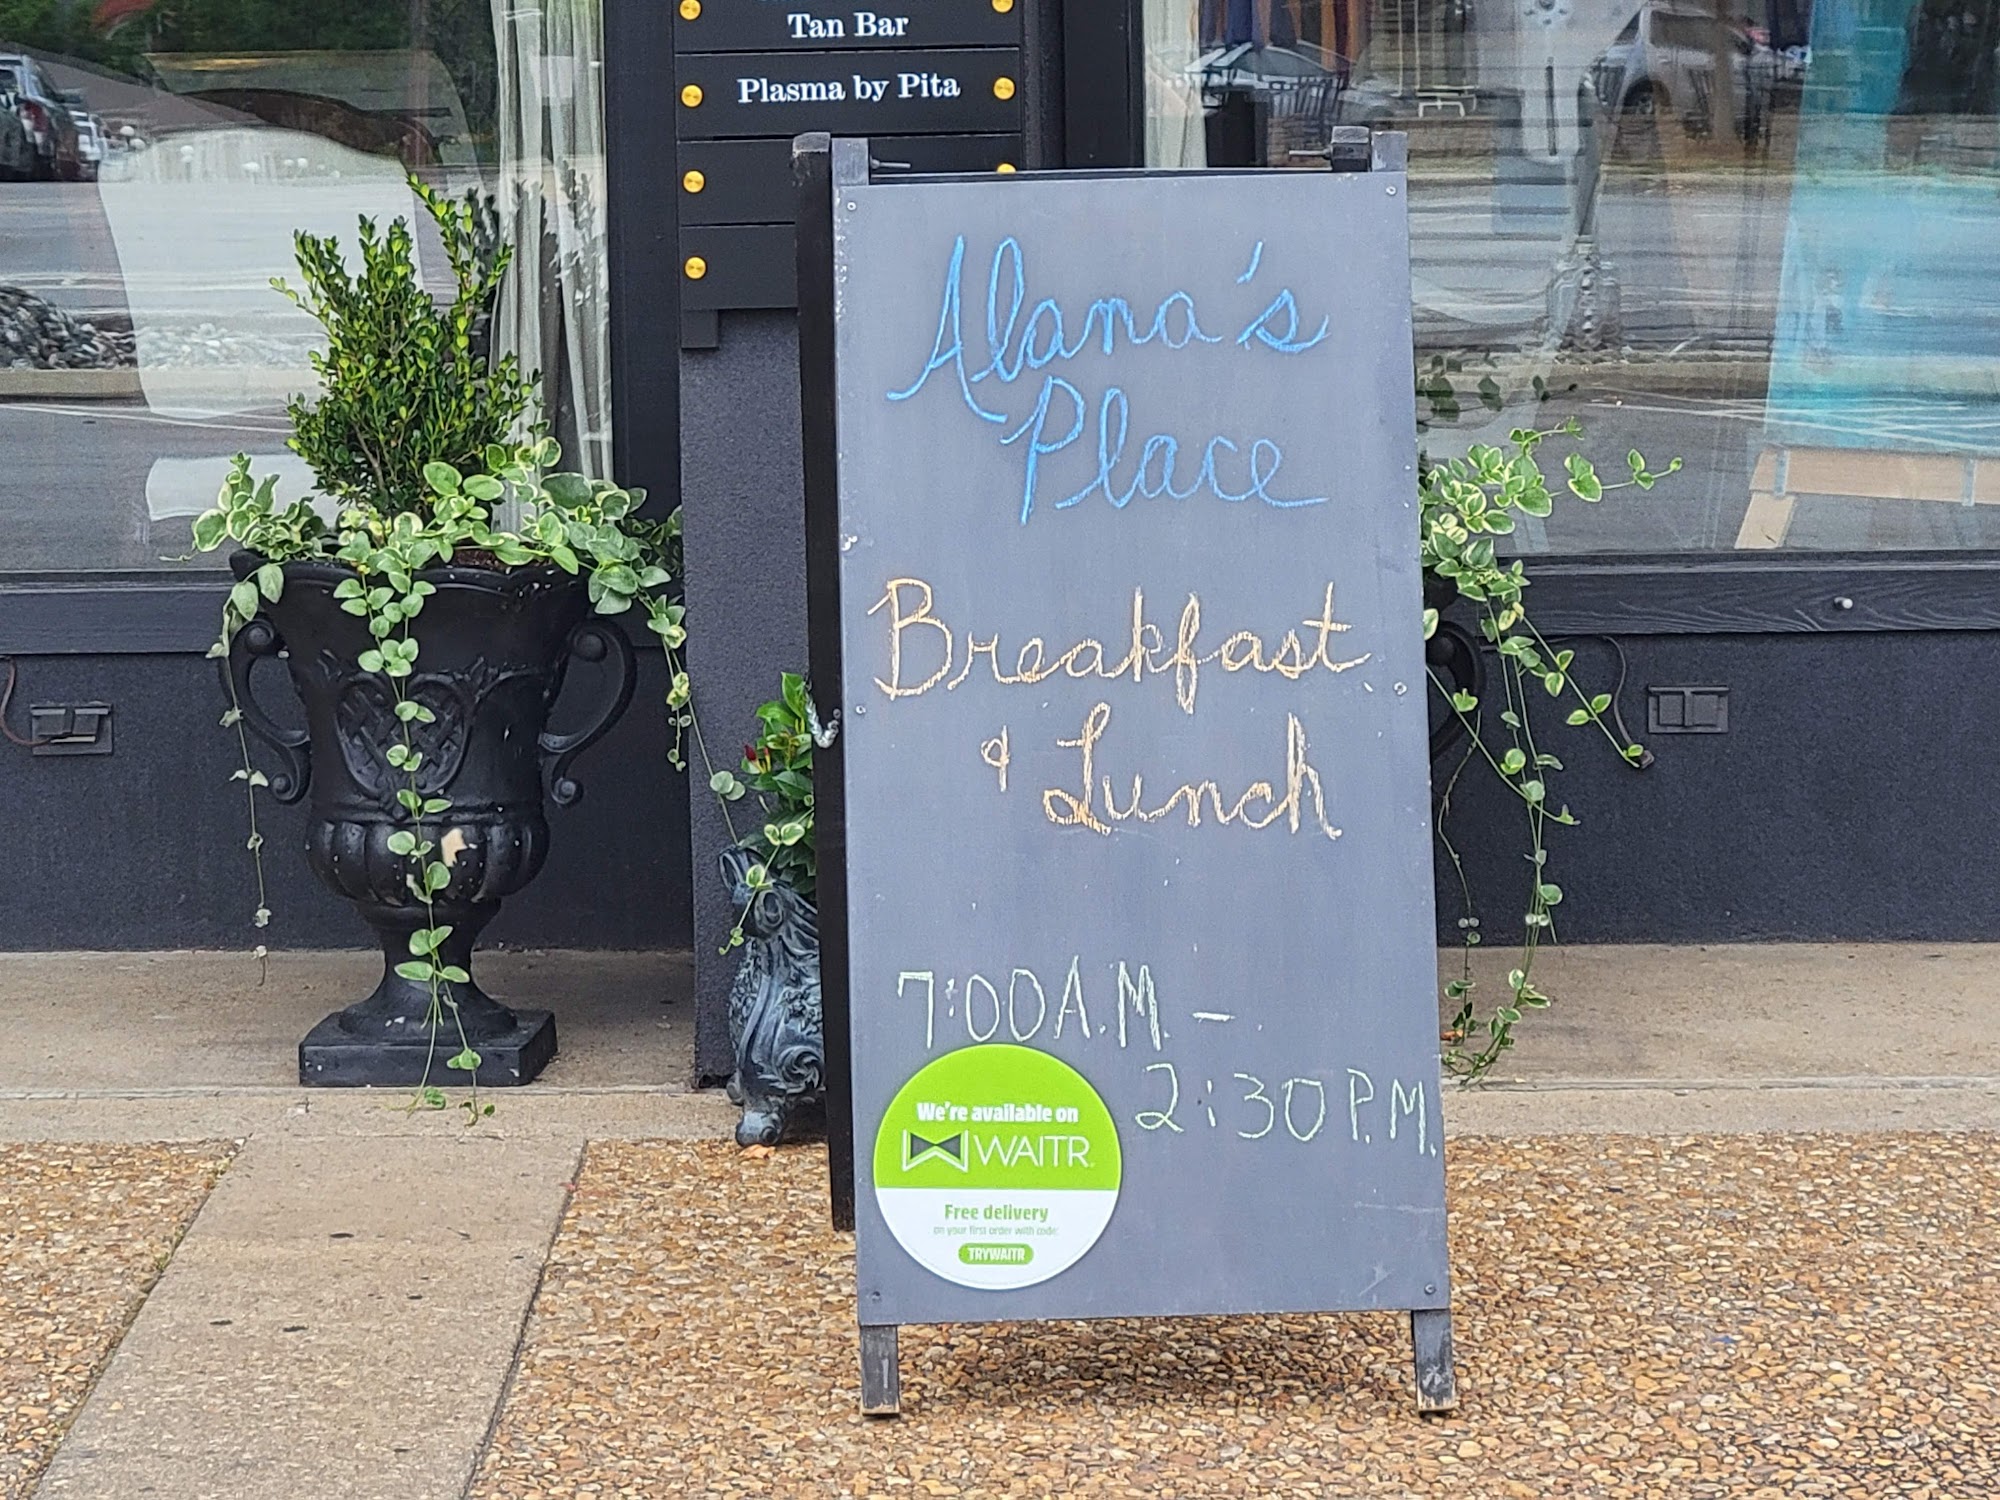 Tan Bar
Plasma by Pita
Alana's
Place
Breakfast
& Lunch
7:00A.M. -
2:30P.M.
We're available on
WAITR
Free delivery
on your first order with code:
TRYWAITR